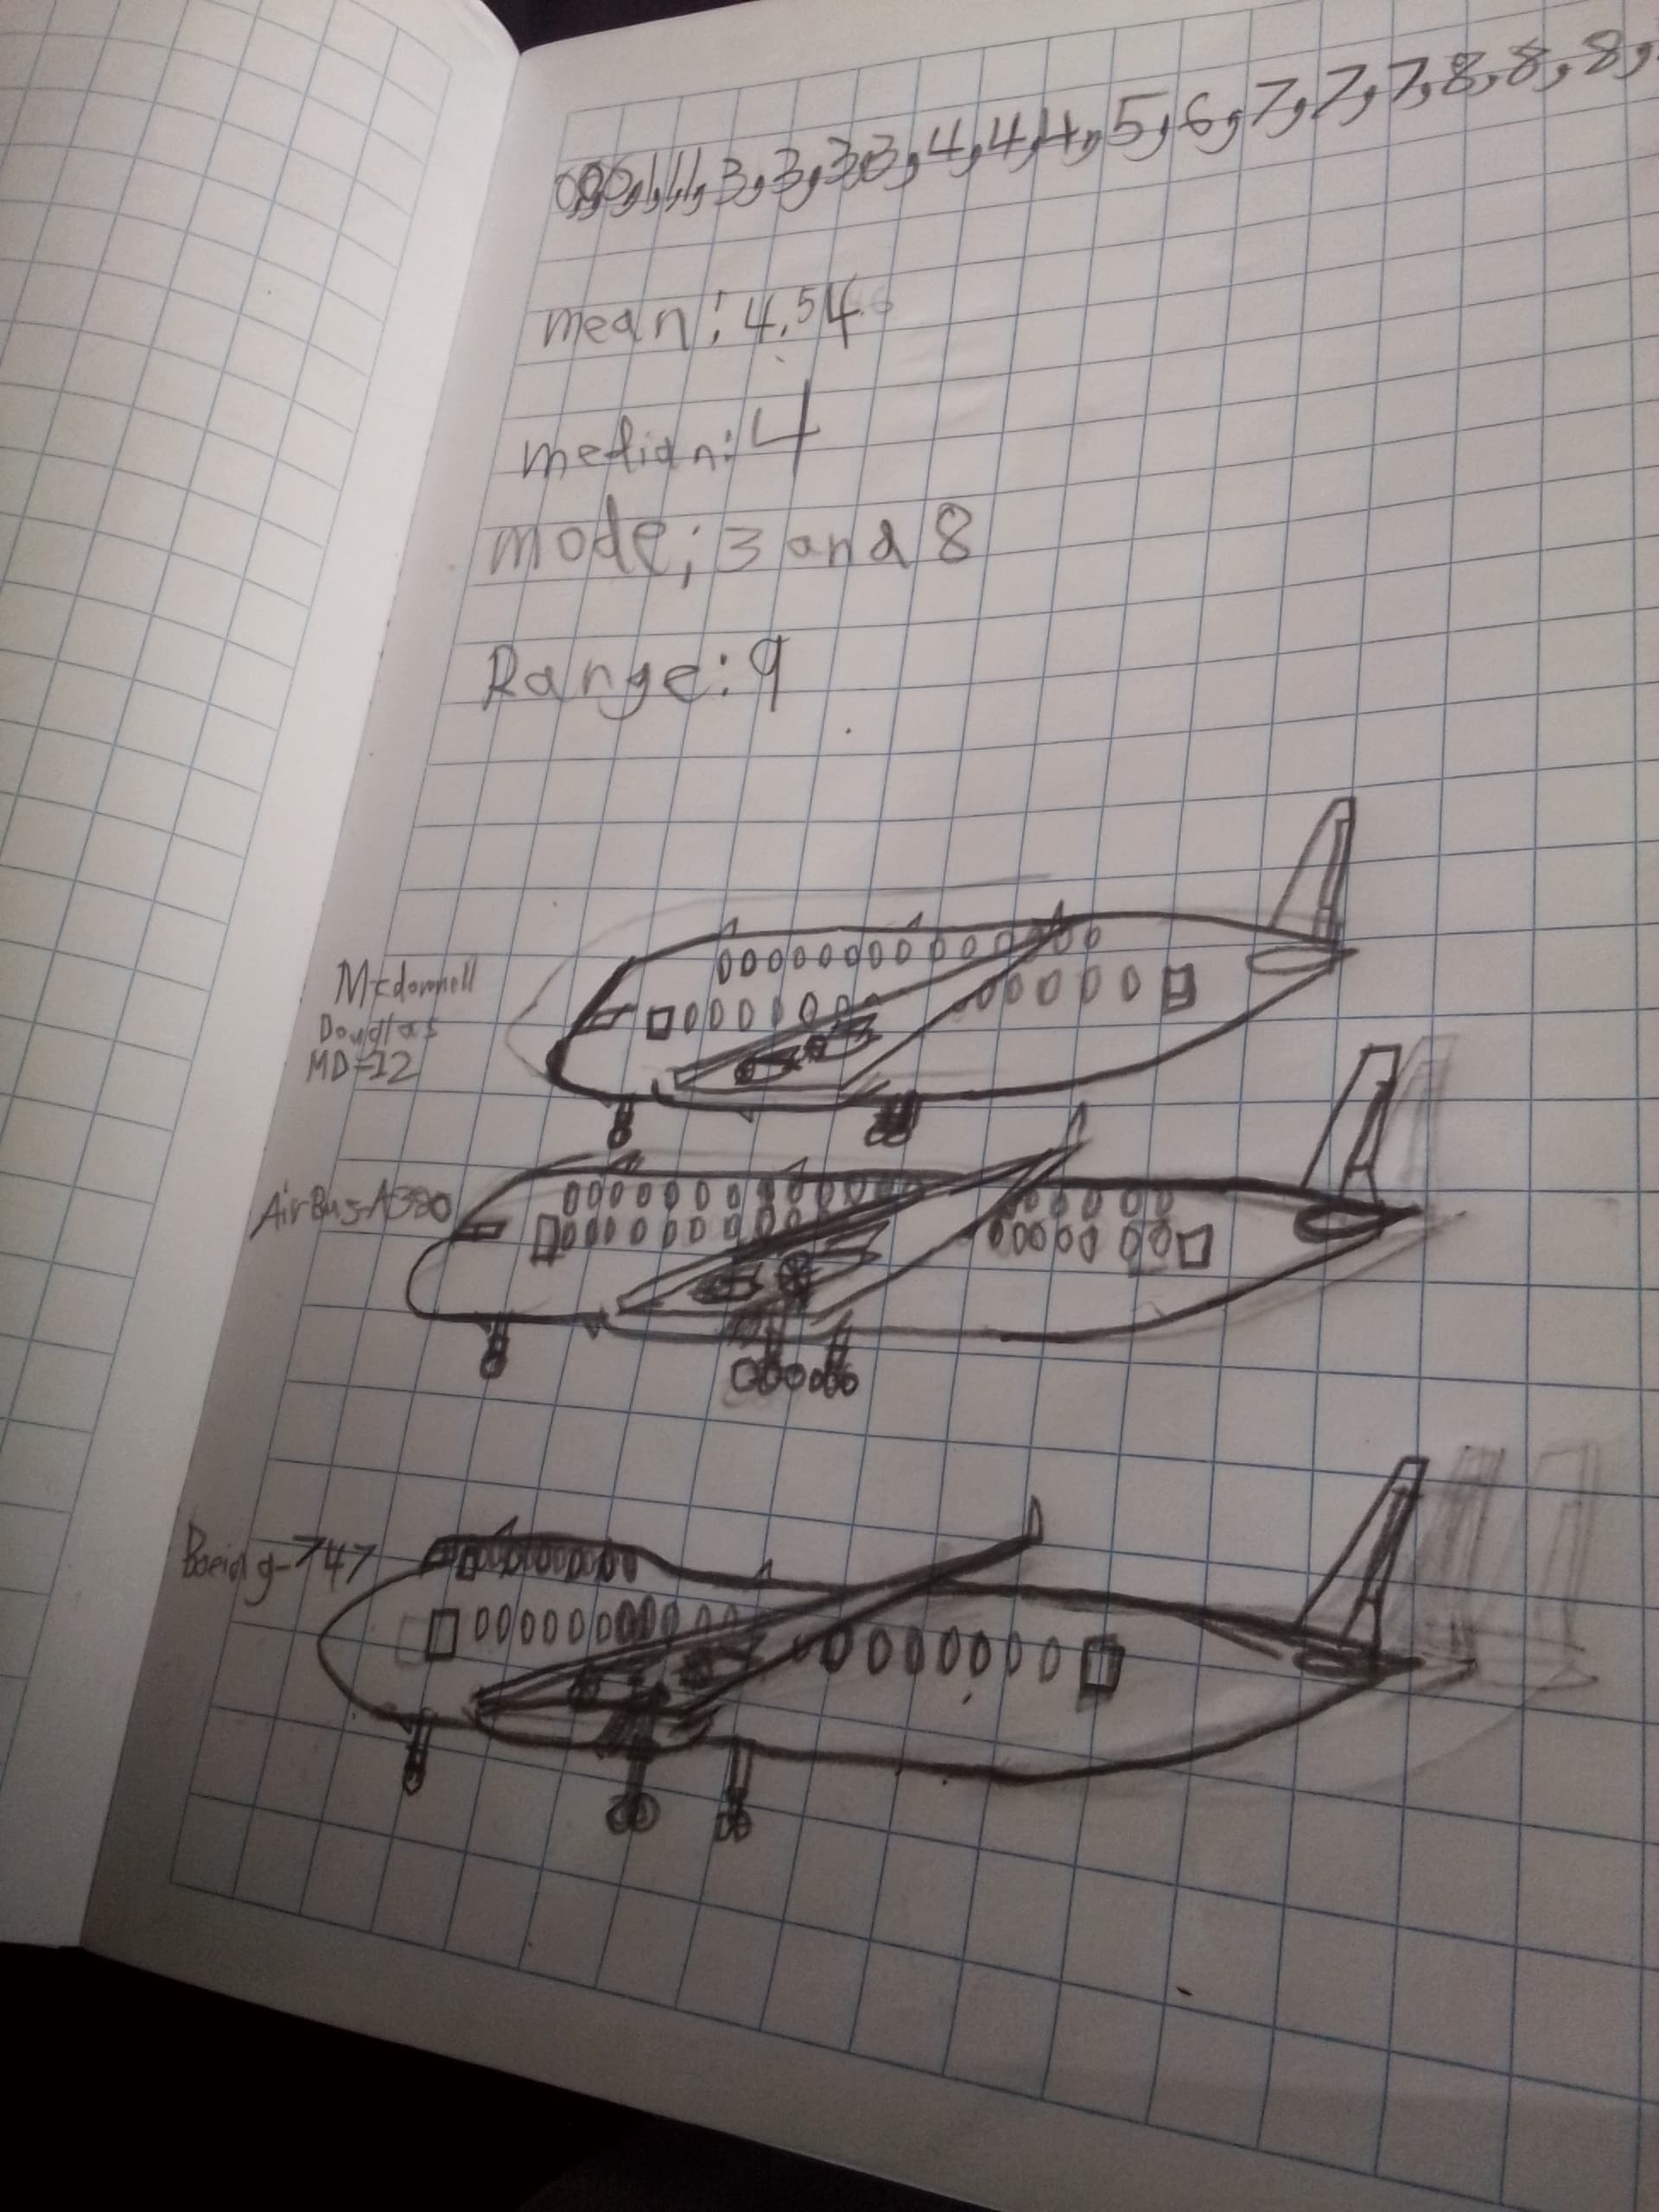 0,0,0,1,1,1,3,3,3,3,4,4,4,5,6,7,7,7,8,8,8,
mean: 4.54
median: 4
mode; 3 and 8
Range: 9
Mcdonnell
Douglas
MD-12
AirBus-A380
Boeing-747